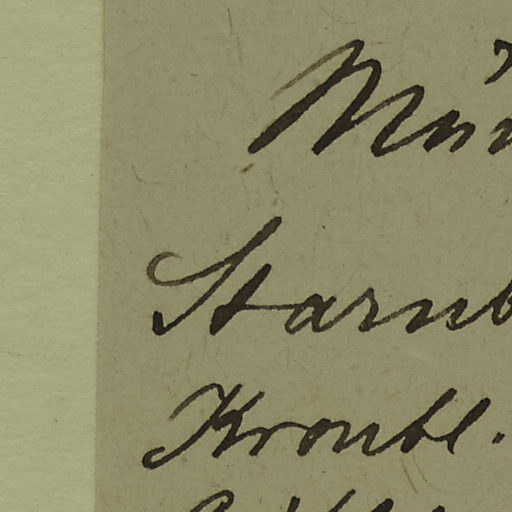 Mün
Starnb
Krontl.